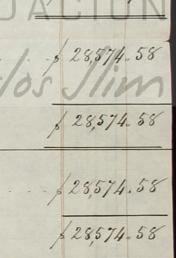 DACIÓN
$ 28,574.58
los Slim
$ 28,574.58
$ 28,574.58
$ 28,574.58